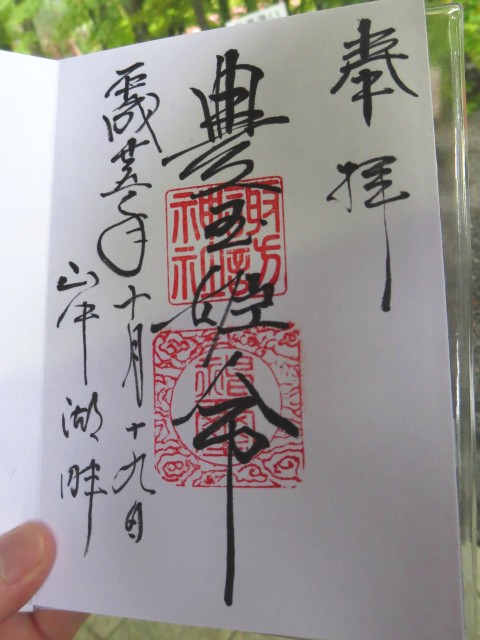 奉拝
豊玉姫命
諏訪神社
平成廿五年十月十九日
山中湖畔